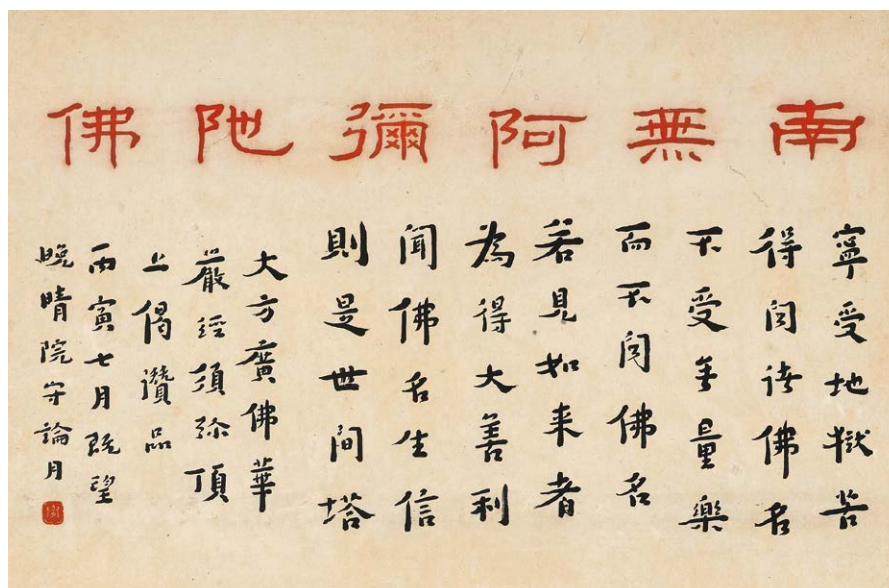 南無阿彌陀佛
寧受地獄苦
得聞諸佛名
不受無量樂
而不聞佛名
若見如来者
為得大善利
聞佛名生信
則是世間塔
大方廣佛華
嚴經須弥頂
上偈讚品
丙寅七月既望
晚晴院守論月